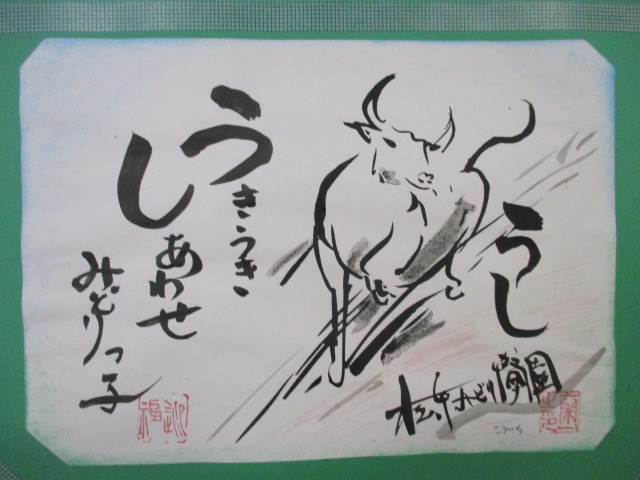 うし
松中みどり保育園
うきうき
しあわせ
みどりっ子
迎福